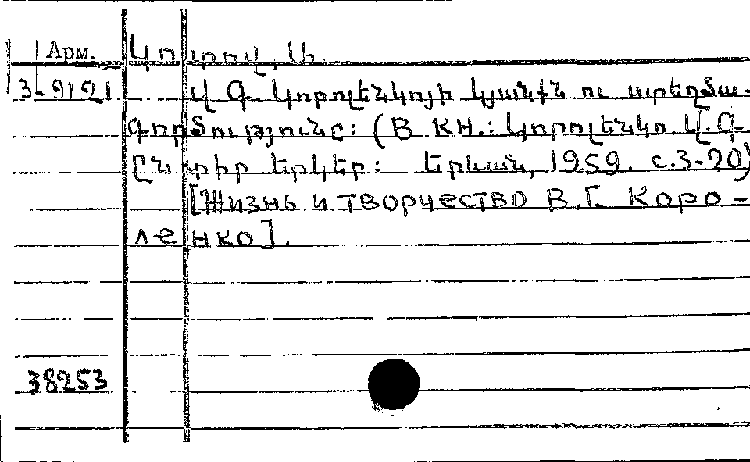 Арм. Կոտով, Ա.
Վ. Գ. Կորոլենկոյի կյանքն ու ստեղծա-
գործությունը: (В кн.: Կորոլենկո Վ.Գ.
Ընտիր երկեր: Երևան, 1959. с.3-20)
[Жизнь и творчество В.Г. Коро-
ленко].
38253